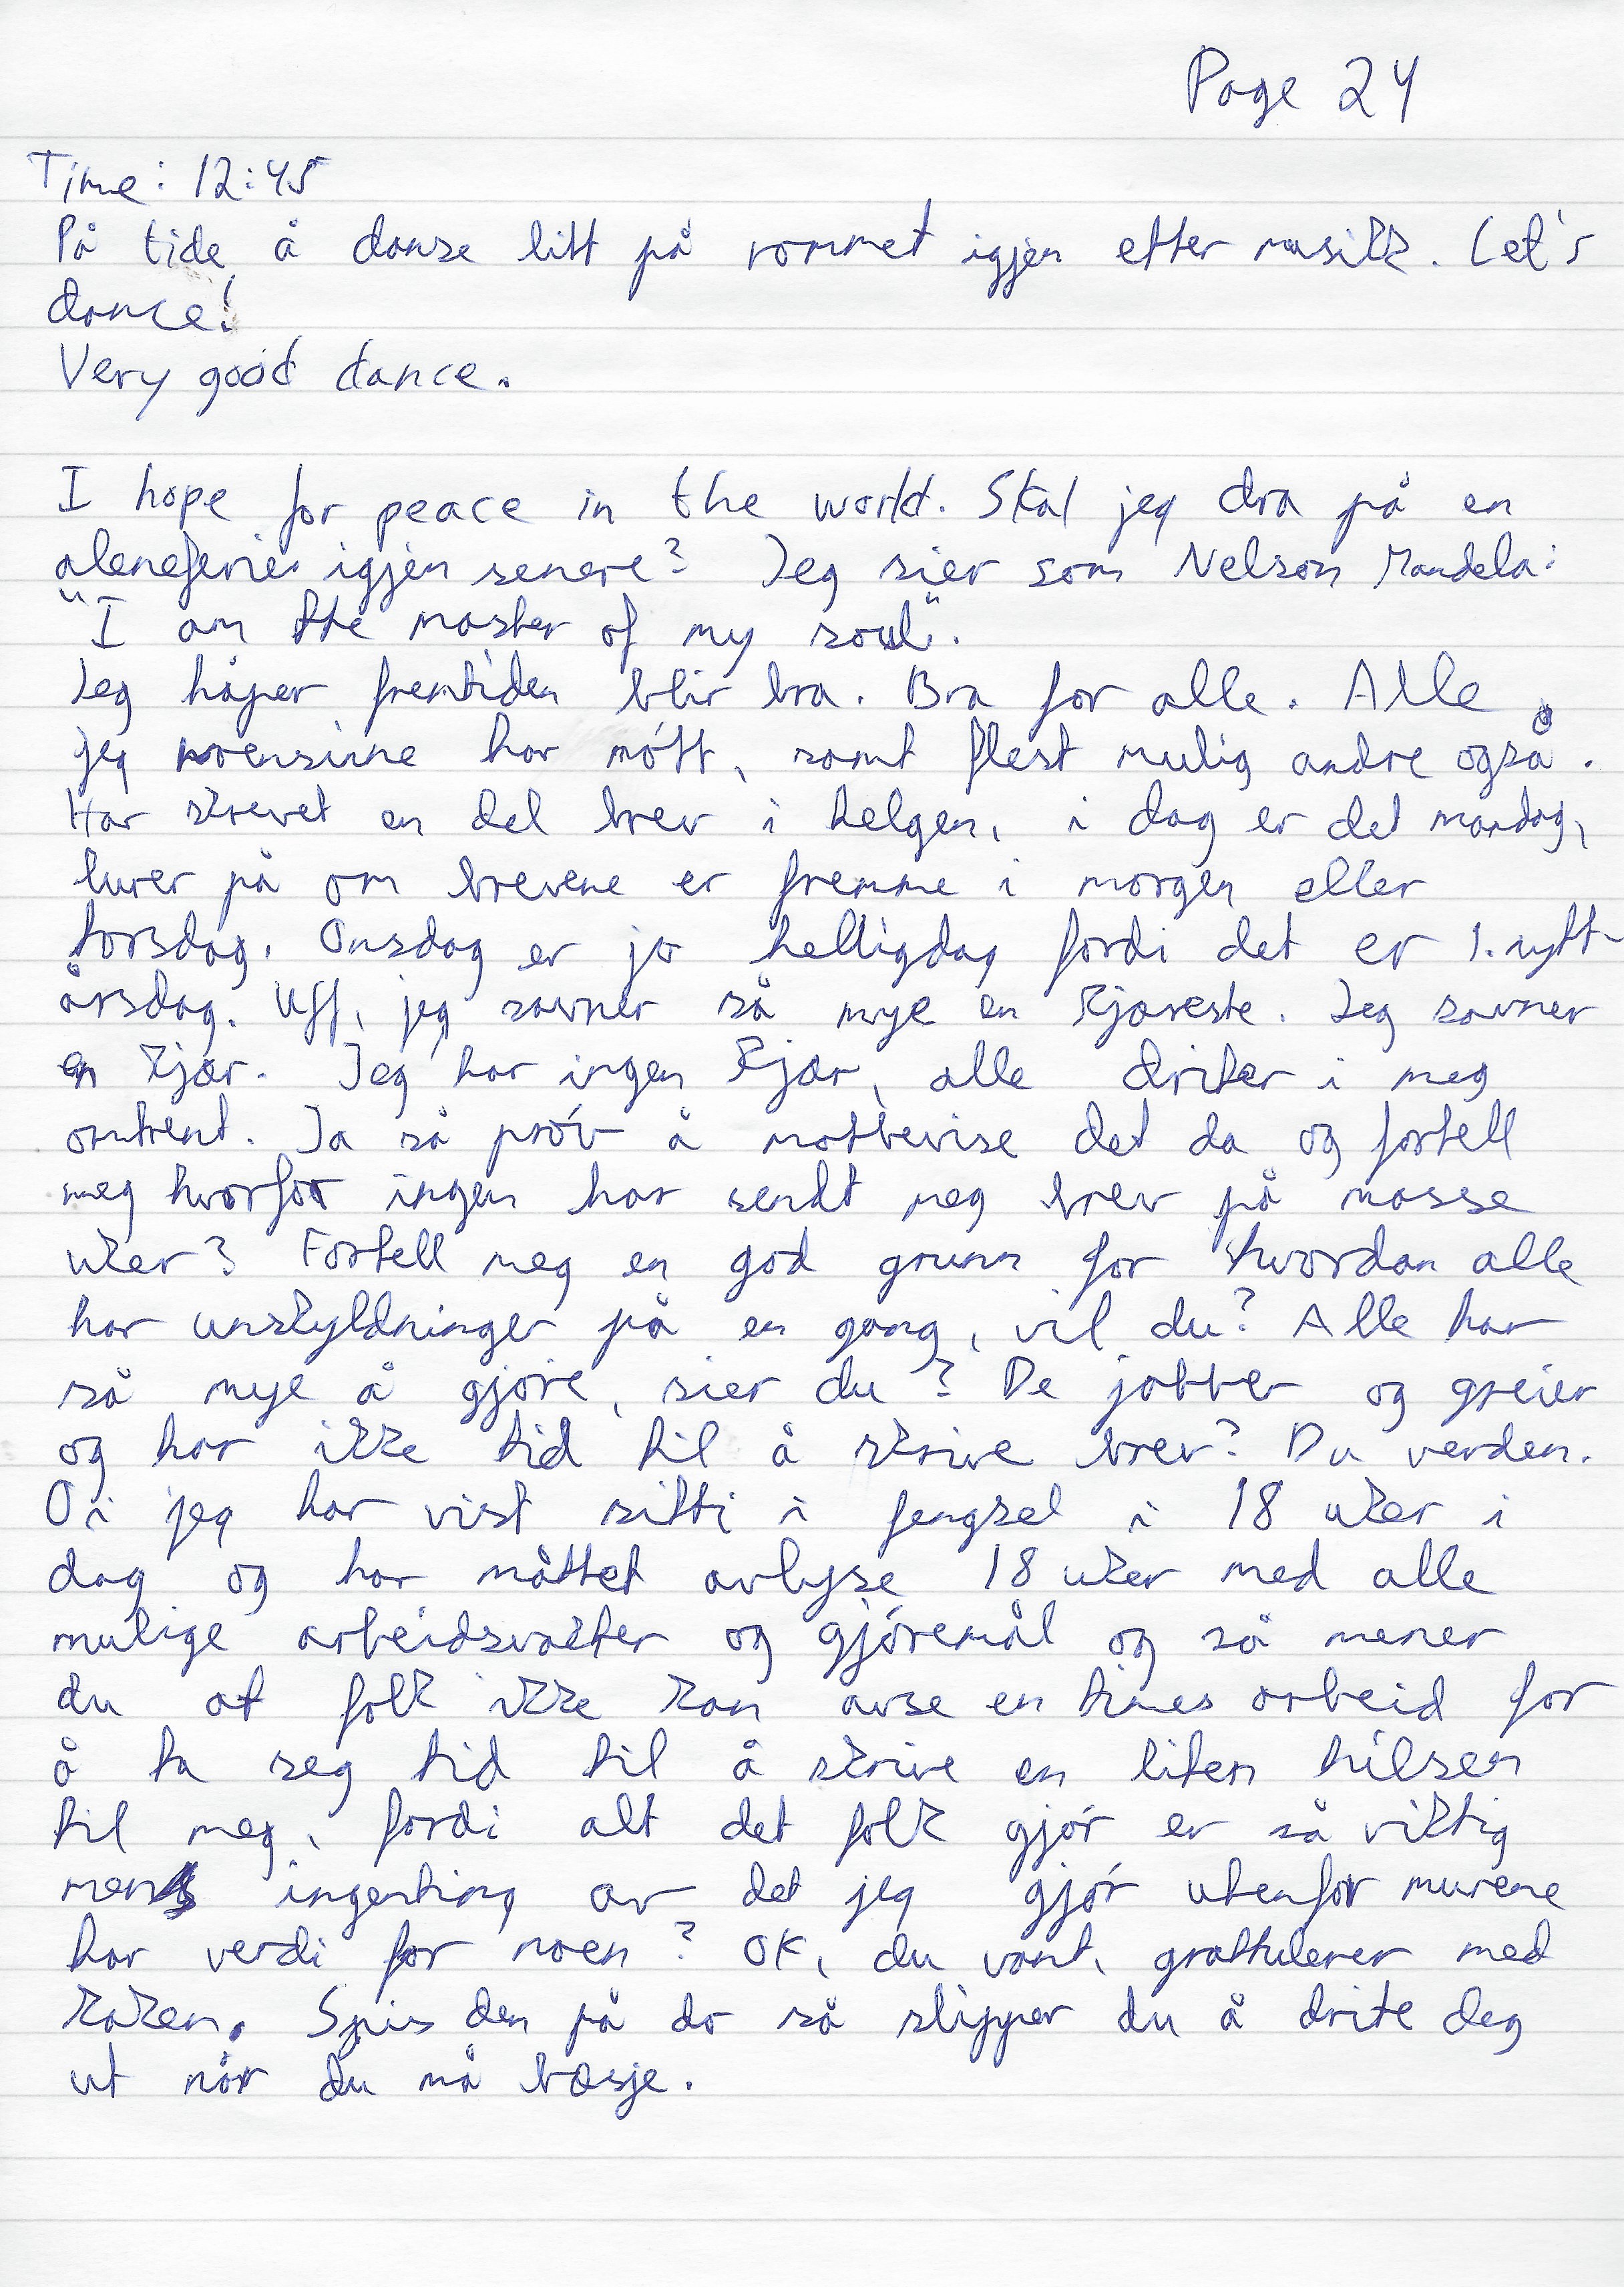 Page 24
Time: 12:45
På tide å danse litt på rommet igjen etter musikk. Let's
dance!
Very good dance.
I hope for peace in the world. Skal jeg dra på en
aleneferie igjen senere? Jeg sier som Nelson Mandela:
"I am the master of my soul".
Jeg håper fremtiden blir bra. Bra for alle. Alle
jeg noensinne har møtt, samt flest mulig andre også.
Har skrevet en del brev i helgen, i dag er det mandag,
lurer på om brevene er fremme i morgen eller
torsdag. Onsdag er jo helligdag fordi det er 1. nytt-
årsdag. Uff, jeg savner så mye en kjæreste. Jeg savner
en kjær. Jeg har ingen kjær, alle driter i meg
omtrent. Ja så prøv å motbevise det da og fortell
meg hvorfor ingen har sendt meg brev på masse
uker? Fortell meg en god grunn for hvordan alle
har unskyldninger på en gang, vil du? Alle har
så mye å gjøre, sier du? De jobber og greier
og har ikke tid til å skrive brev? Du verden.
Oi jeg har vist sitti i fengsel i 18 uker i
dag og har måttet avlyse 18 uker med alle
mulige arbeidsvakter og gjøremål og så mener
du at folk ikke kan avse en times arbeid for
å ta seg tid til å skrive en liten hilsen
til meg, fordi alt det folk gjør er så viktig
mens ingenting av det jeg gjør utenfor murene
har verdi for noen? OK, du vant, grattulerer med
kaken. Spis den på do så slipper du å drite deg
ut når du må bæsje.